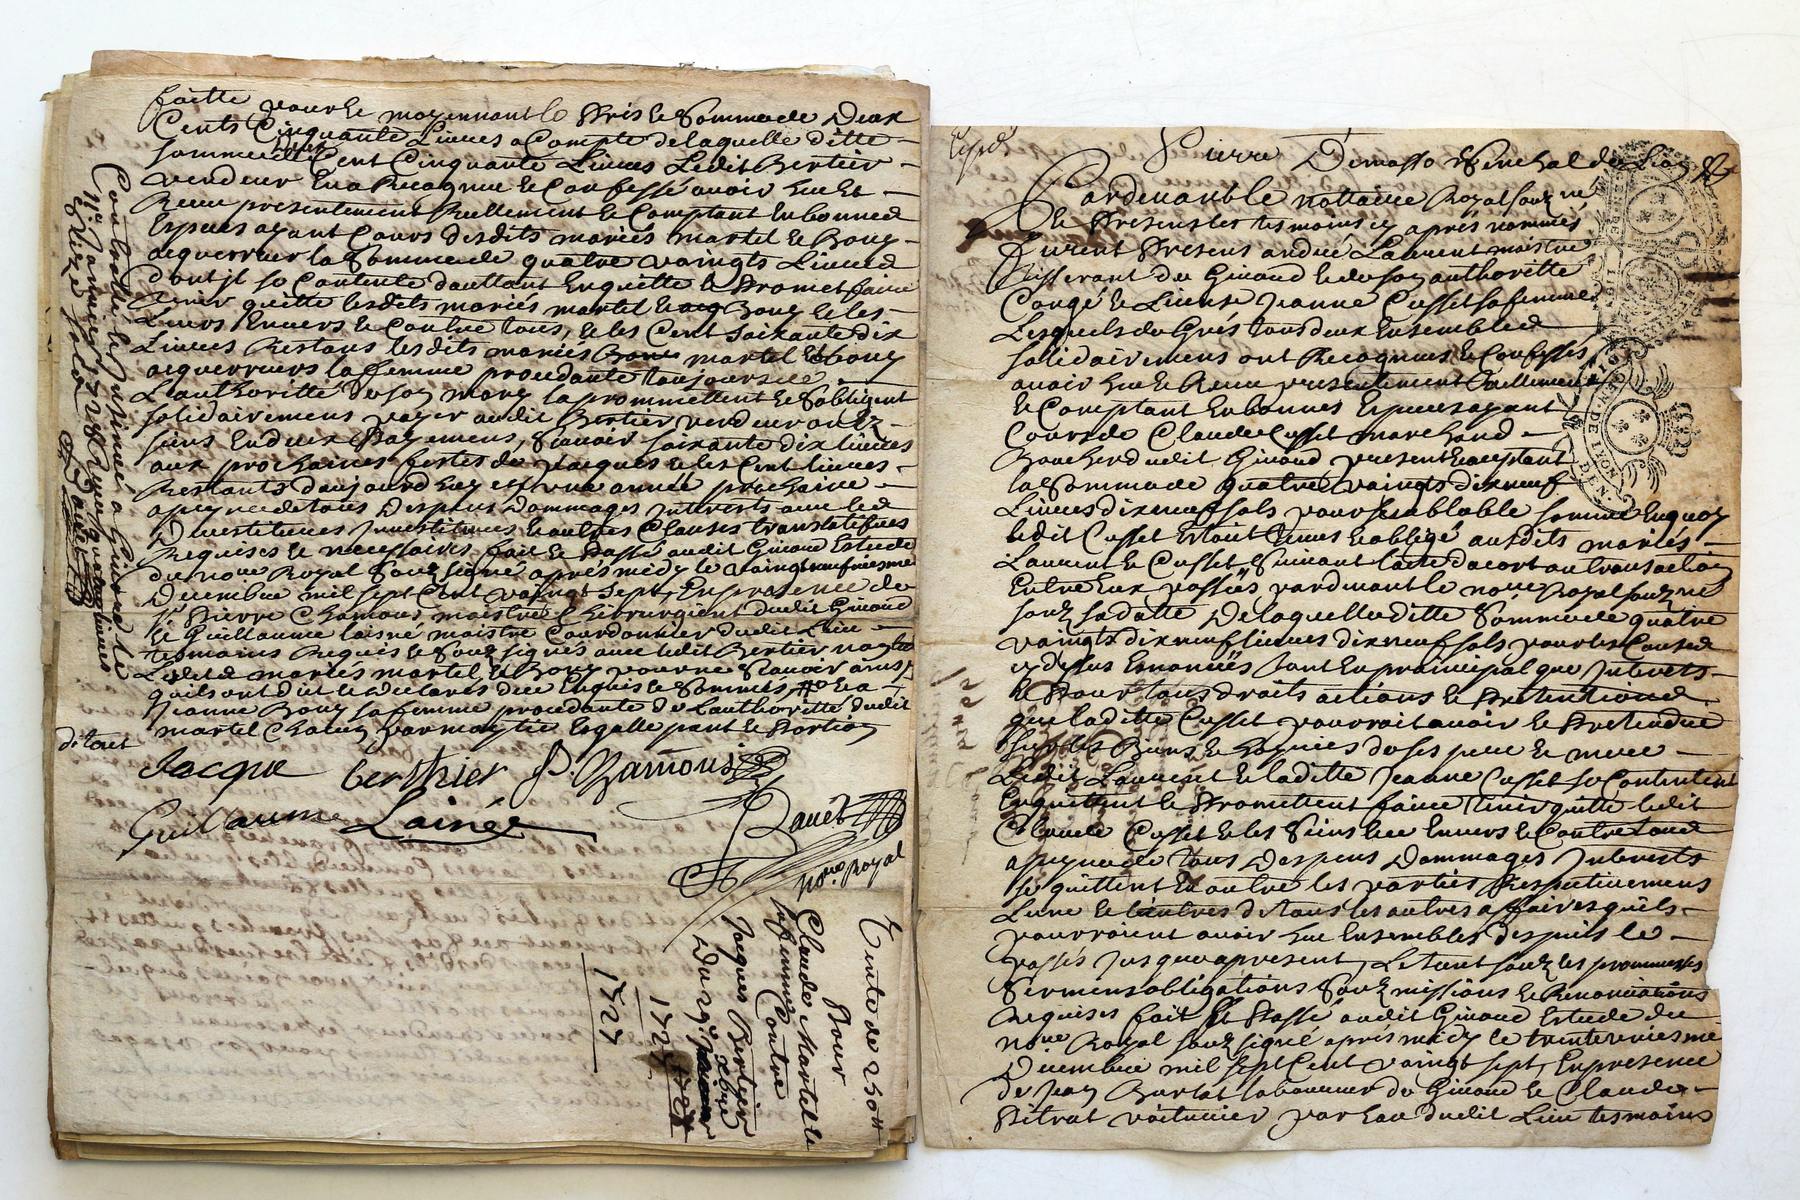 faitte pour le moyennant le Pris & Somme de Deux
Cents Cinquante Livres a Compte de laquelle ditte
somme de Deux Cent Cinquante Livres Ledit Bertier
vendeur En a Recognu & Confessé avoir heu &
Receu presentement Reellement & Comptant En bonnes
Especes ayant Cours desdits mariés martel & Bouy
aiguerrier la Somme de quatre vaingts Livres
dont jl so Contente dauttant Enquitte & Promet faire
tenir quitte lesdits mariés martel & Bouy & les
Leurs Envers & Contre tous, & les Cent soixante dix
Livres Restans lesdits mariés martel & Bouy
aiguerriers la femme procedante toujours de
L'authoritté de son mary la promettent & S'obligent
solidairement payer audit Bertier vendeur ou Ez
siens En deux Payemens, Scavoir soixante dix livres
aux prochaines festes de Jacques & les Cent livres
Restants d'aujourd'huy en une année prochaine
a peyne de tous Despens Dommages Interests avec les
Devestitures Investitures & autres Clauses translatifves
Requises & necessaires fait & Passé audit Givord Estude
du no.re Royal Souz signé aprés midy le vaingt neufviesme
Decembre mil sept Cent vaingt sept, En presence de
s.r Pierre Chamous, maistre Chirurgient dudit Givord
& Guillaume laisné maistre Courdonnier dudit Lieu
tesmoins Requis & Souz signés avec ledit Bertier
Lesdits mariés martel & Bouy pour ne Scavoir ainsy
quils ont dit & declaré de ce Enquis & Sommés
Jeanne Bouy sa femme procedante de L'authoritté dudit
martel Chacun par moytie Esgalle part & Portion
Jacque berthier P. Chamous
Guillaume Lainée
no.re Royal
Controllé & Insinué a Givord le
11.e Janvier 1728 Receu quatre livres
seize sols
Vente de 250 ll
Pour
Claude Martel &
sa femme Contre
Jacques Bertier
Du 29.e xbre
1727
1727
Pierre Demasso Senechal de Lion
Pardevant le nottaire Royal souz.né
& Presens les tesmoins cy aprés nommés
furent Presens andré Laurent maistre
tisserant de Givord & de son authoritté
Congé & License Jeanne Cusset sa femme
Lesquels de Grés tous deux Ensembles
solidairement ont Recognus & Confessés
avoir heu & Receu presentement Reellement
& Comptant En bonnes Especes ayant
Cours de Claude Cusset marchand
Boucher dudit Givord present & acceptant
la Somme de quatre vaingts dix neuf
Livres dix neuf sols pour semblable somme En quoy
ledit Cusset Estoit tenus & obligé ausdits mariés
Laurent & Cusset suivant l'acte dacort ou transaction
Entre Eux passés pardevant le no.re Royal souz.né
souz sa datte De laquelle ditte Somme de quatre
vaingts dix neuf livres dix neuf sols pour les Causes
cy dessus Enoncées tant En prainçipal que Interets
& Pour tous droits actions & Pretentions
que laditte Cusset pourroit avoir & Pretendre
sur les Biens & hoyries de ses pere & mere
Ledit Laurent & laditte Jeanne Cusset se Contentent
Enquittent & Promettent faire tenir quitte ledit
Claude Cusset & les Siens Envers & Contre tous
a peyne de tous Despens Dommages Interests
se quittent En outre les parties Respectivement
L'une & l'autres de tous les autres affaires quils
pourroient avoir heu Ensembles despuis le
passés jusqu'a present, Le tout souz les promesses
Sermens obligations Souzmissions & Renonciations
requises fait & Passé audit Givord Estude du
no.re Royal souz signé aprés midy le trenteiesme
Decembre mil sept Cent vaingt sept, En presence
de Jean Burlat laboureur de Givord & Claude
Pitrat voiturier par Eau dudit Lieu tesmoins
GEN DE LION